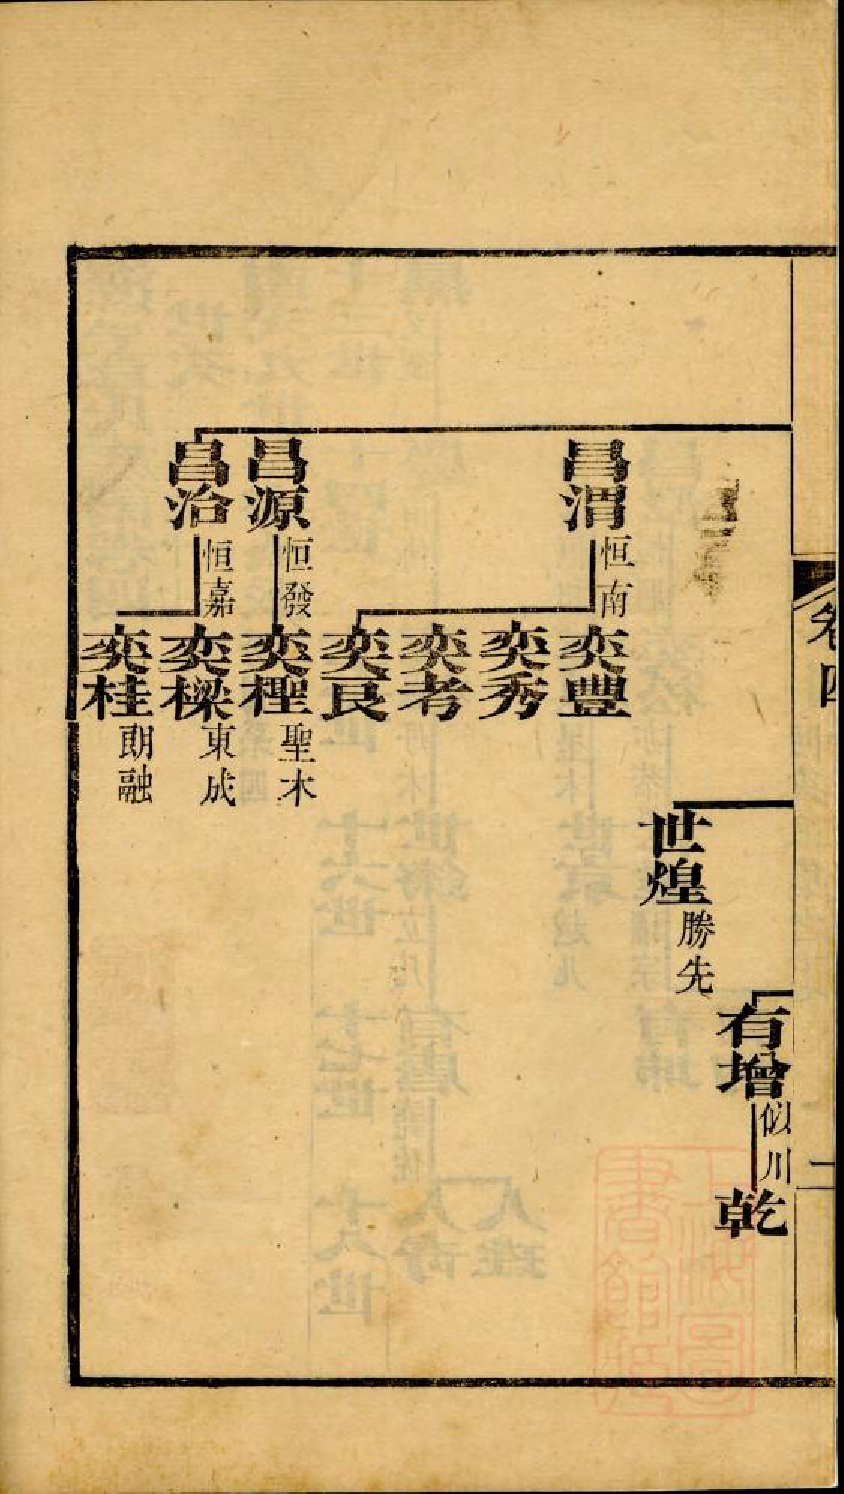 卷四
二
有增 似川
乾
世煌 勝先
昌渭 恒南
奕豐
奕秀
奕考
奕艮
昌源 恒發
奕檉 聖木
昌治 恒嘉
奕樑 東成
奕桂 朗融